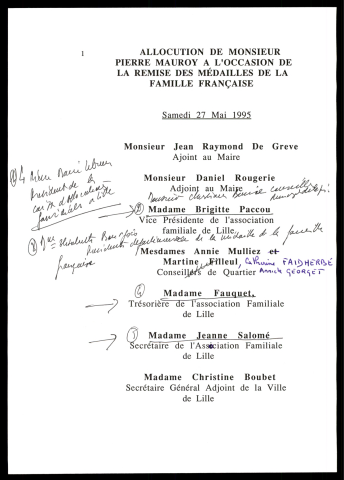 1
ALLOCUTION DE MONSIEUR
PIERRE MAUROY A L'OCCASION DE
LA REMISE DES MÉDAILLES DE LA
FAMILLE FRANÇAISE
Samedi 27 Mai 1995
Monsieur Jean Raymond De Greve
Ajoint au Maire
Monsieur Daniel Rougerie
Adjoint au Maire
4
Président de la
familiales à Lille
Madame Brigitte Paccou
Vice Présidente de l'association
familiale de Lille
Présidente départementale de la médaille de la famille
française
Mesdames Annie Mulliez et
Martine Filleul, Catherine FAIDHERBE
Conseillers de Quartier Annick GEORGET
Madame Fauquet,
Trésorière de l'association Familiale
de Lille
Madame Jeanne Salomé
Secrétaire de l'Association Familiale
de Lille
Madame Christine Boubet
Secrétaire Général Adjoint de la Ville
de Lille